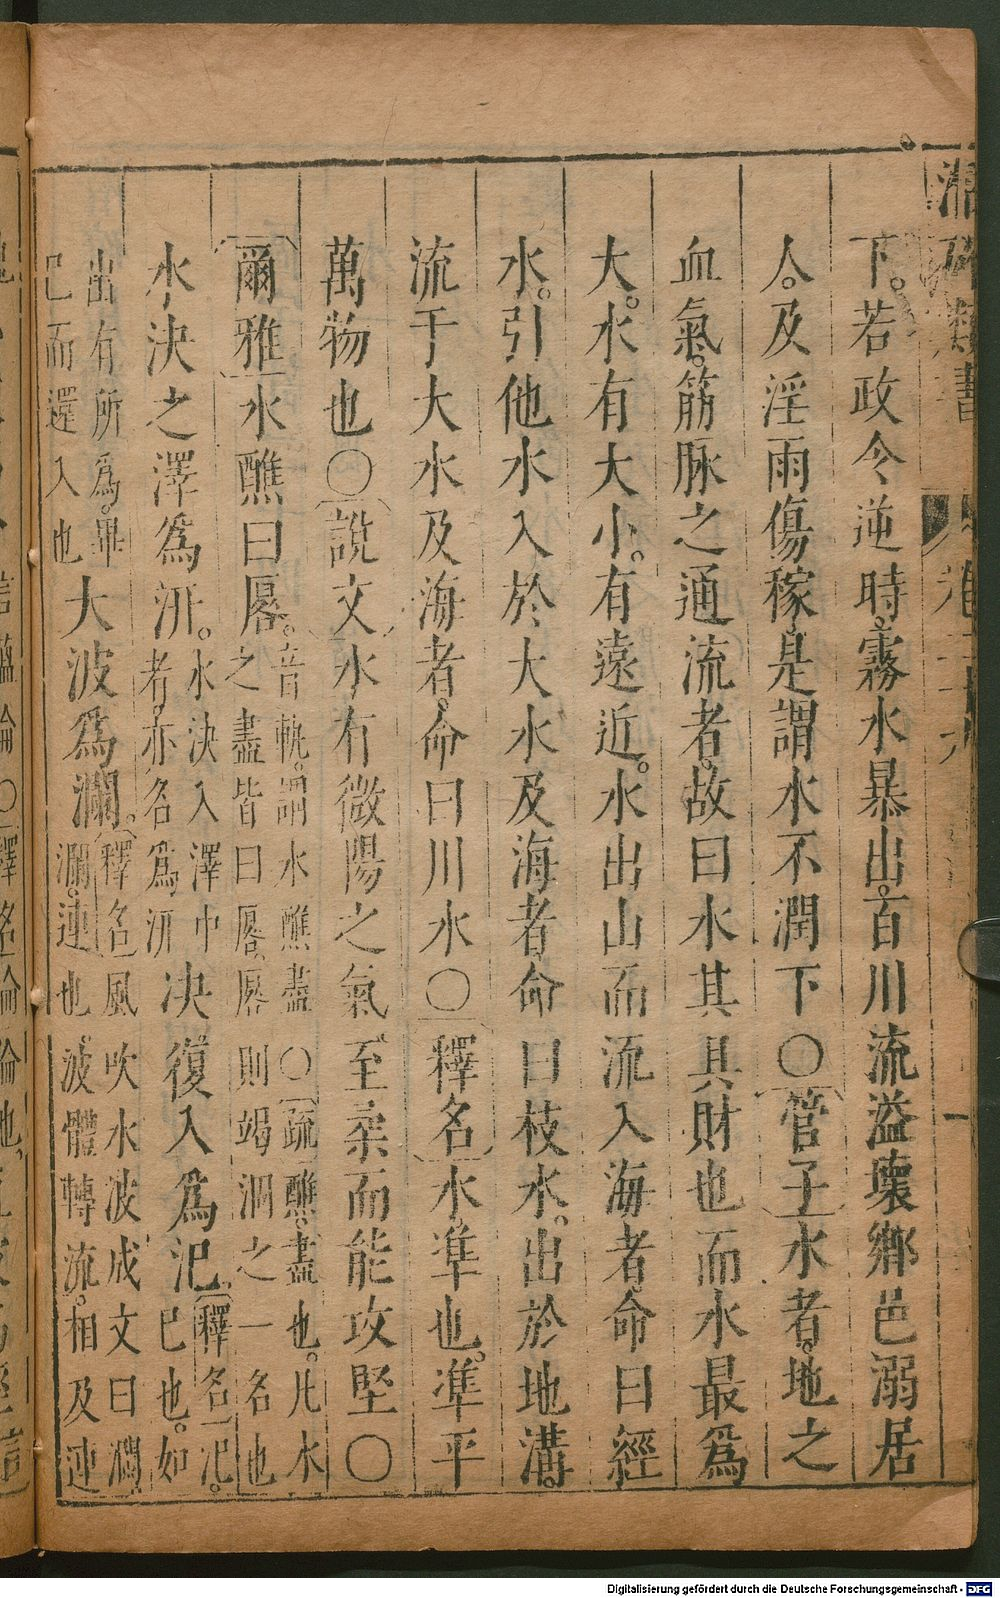 潛確類書
下。若政令逆時霧水暴出。百川流溢壞鄉邑溺居
人。及淫雨傷稼是謂水不潤下〇管子水者。地之
血氣。筋脉之通流者。故曰水其具財也而水最爲
大。水有大小。有遠近。水出山而流入海者。命曰經
水。引他水入於大水及海者命曰枝水。出於地溝。
流于大水及海者。命曰川水〇釋名水。準也。準平
萬物也〇說文水有微陽之氣至柔而能攻堅〇
爾雅水醮曰厬。音軌。謂水醮盡〇疏醮。盡也。凡水之盡皆曰厬。厬則竭涸之一名也
水決之澤爲汧。水決入澤中者。亦名爲汧決復入爲汜。釋名汜。巳也。如
出有所爲。畢已而還入也大波爲瀾。釋名風吹水波成文曰瀾瀾。連也。波體轉流。相及連
Digitalisierung gefördert durch die Deutsche Forschungsgemeinschaft - DFG